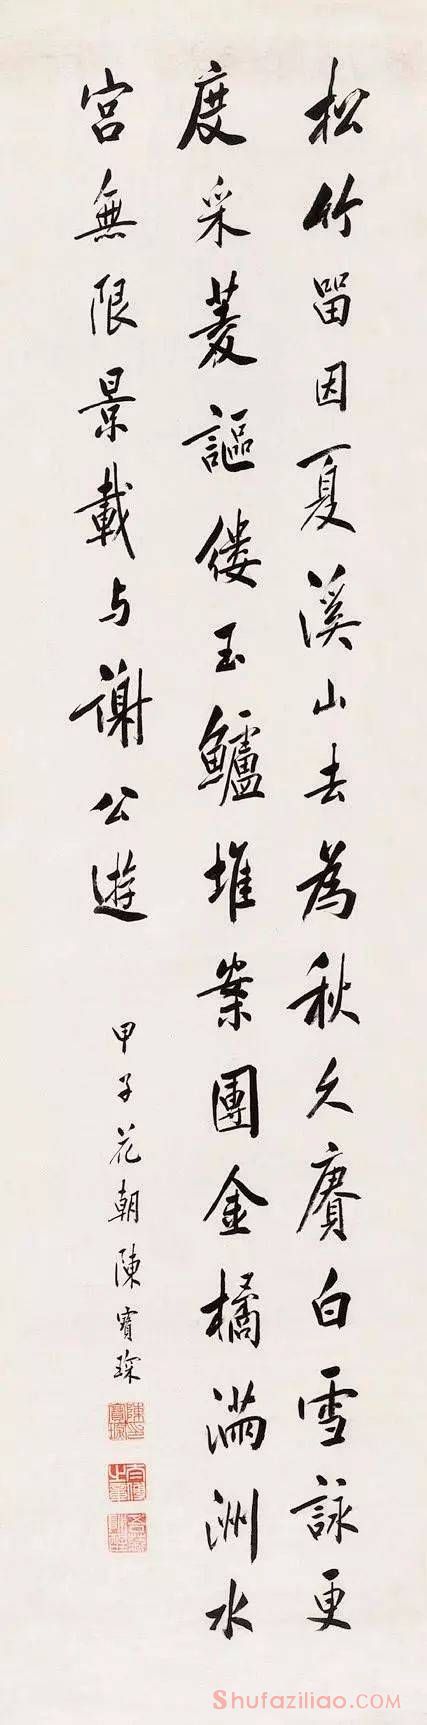 松竹留因夏溪山去為秋久賡白雪詠更
度采菱謳縷玉鱸堆案團金橘滿洲水
宮無限景載与謝公遊
甲子花朝陳寶琛
Shufaziliao.COM